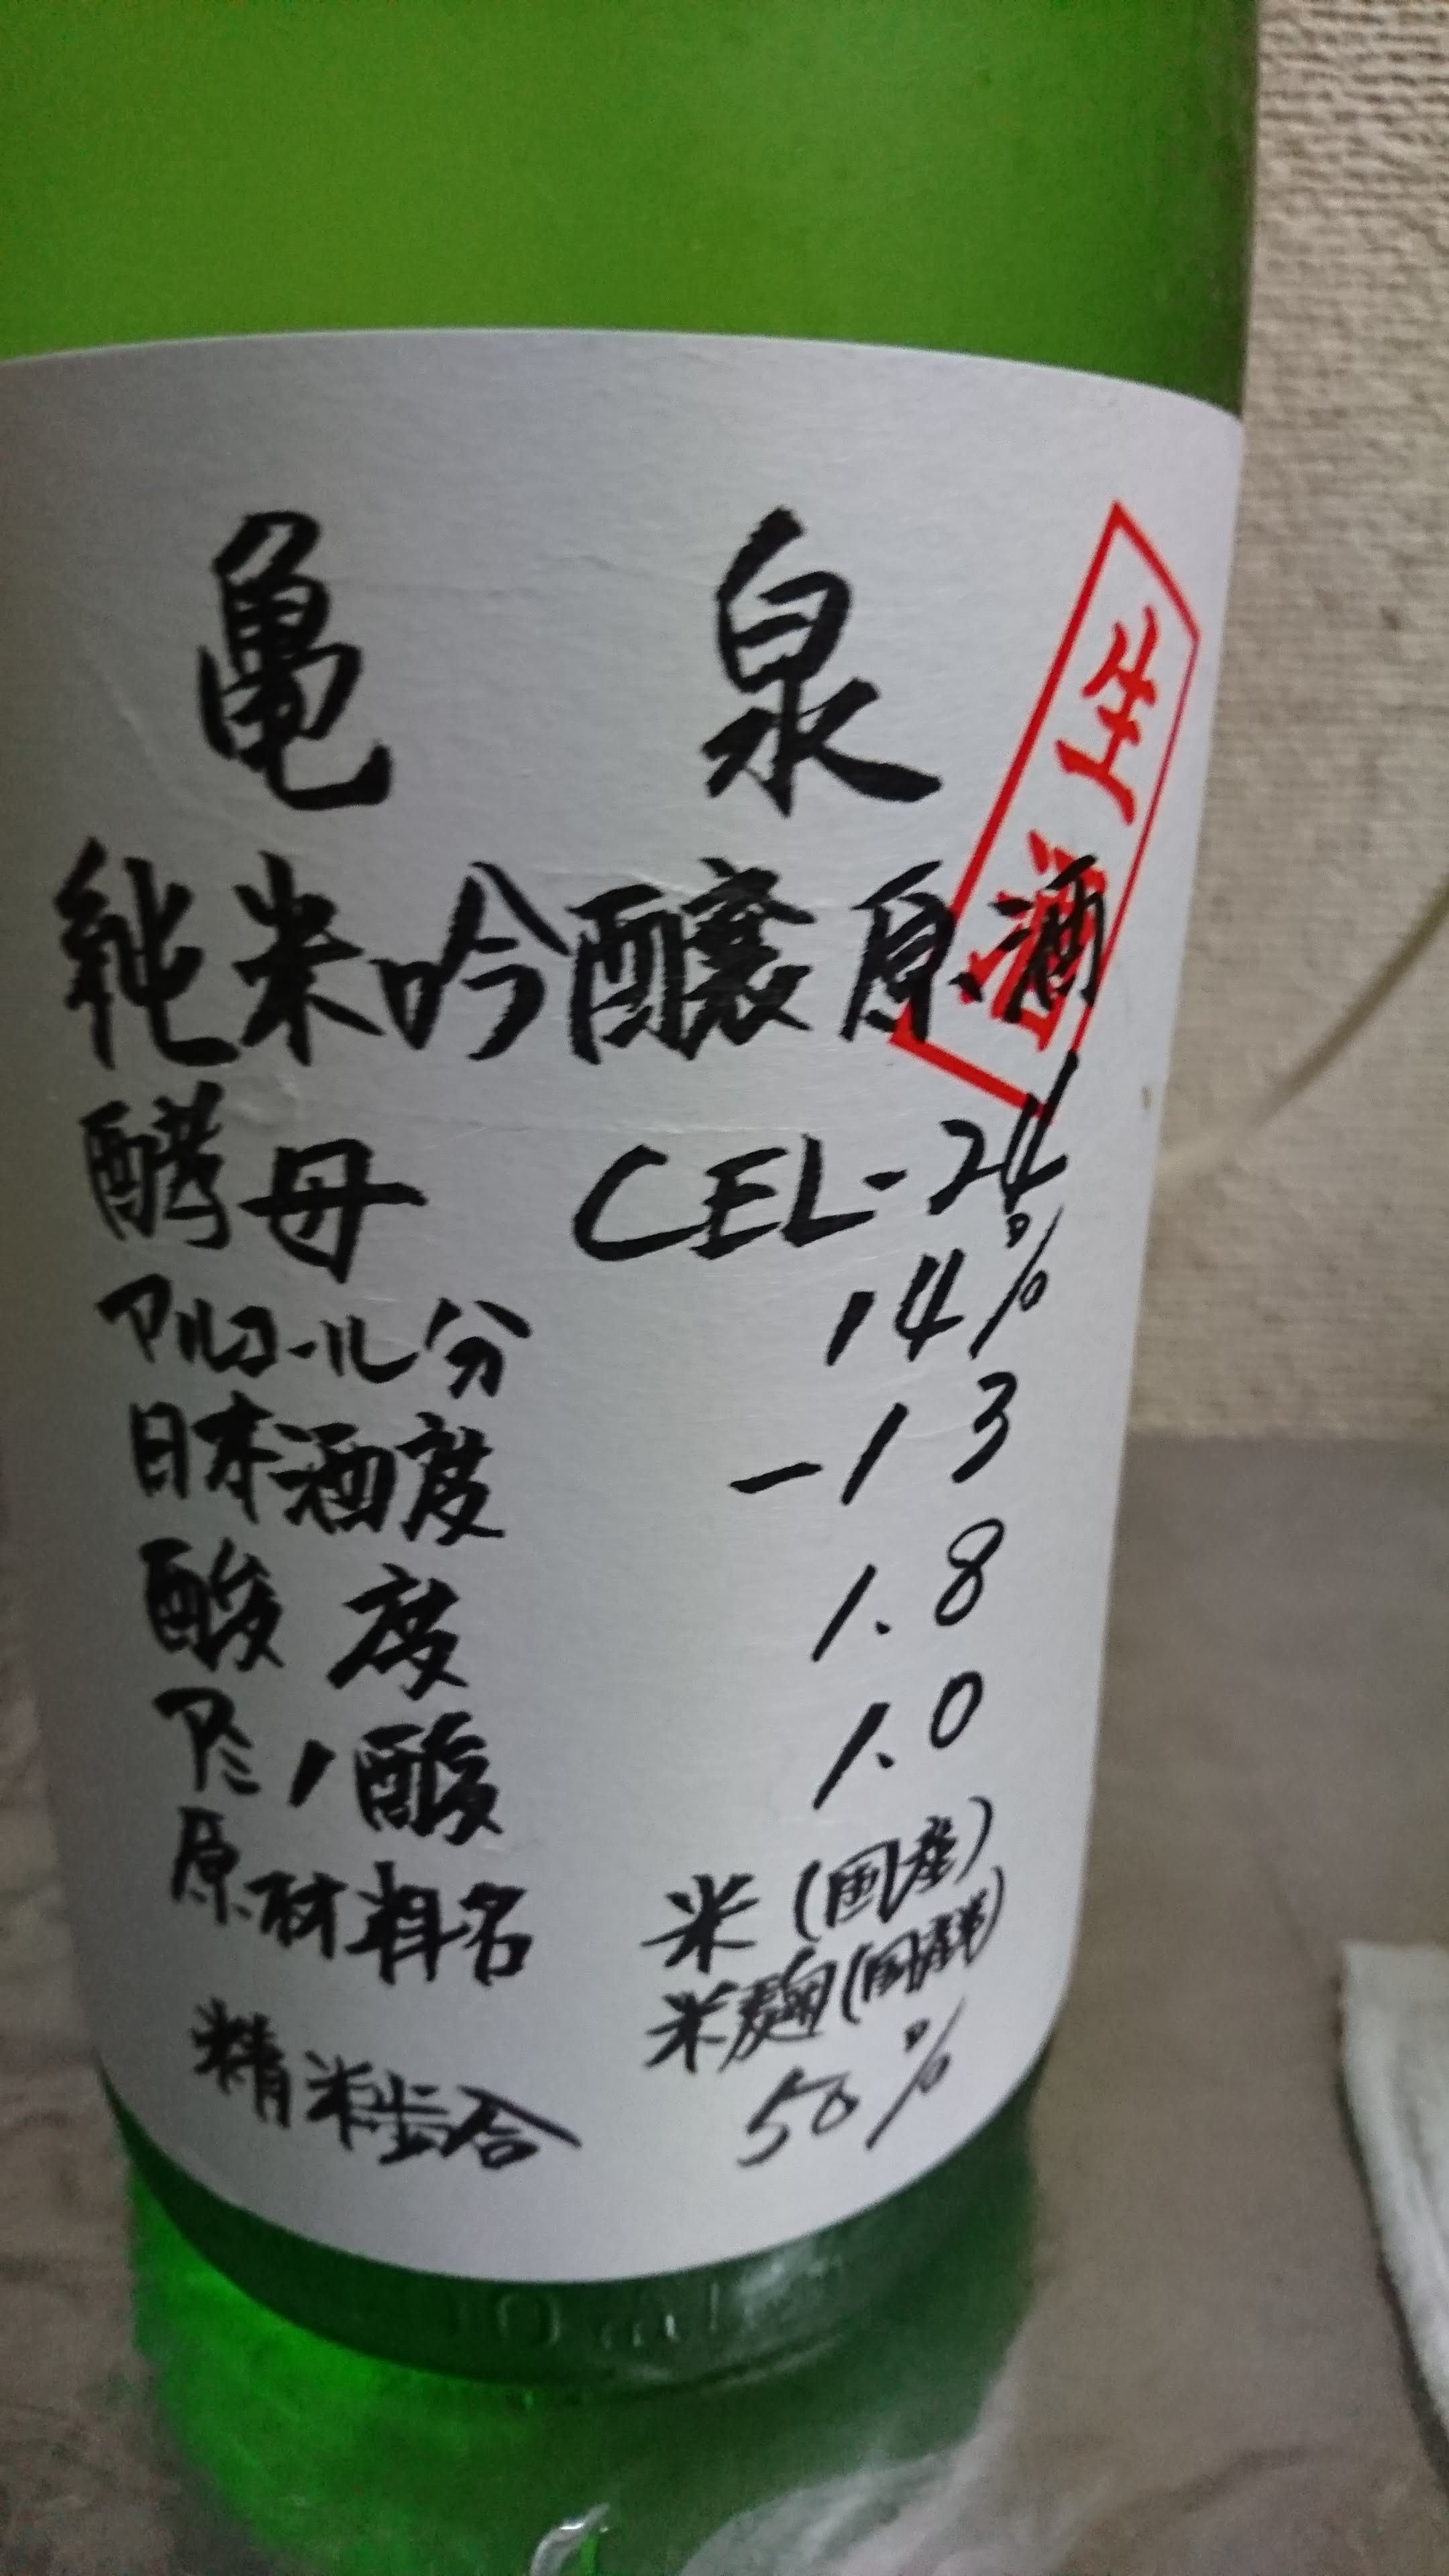 亀 泉
生酒
純米吟醸原酒
酵母 CEL-24
アルコール分 14%
日本酒度 -13
酸度 1.8
アミノ酸 1.0
原材料名 米(国産)
米麹(国産米)
精米歩合 50%